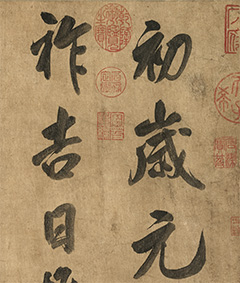 初歲元
祚吉日